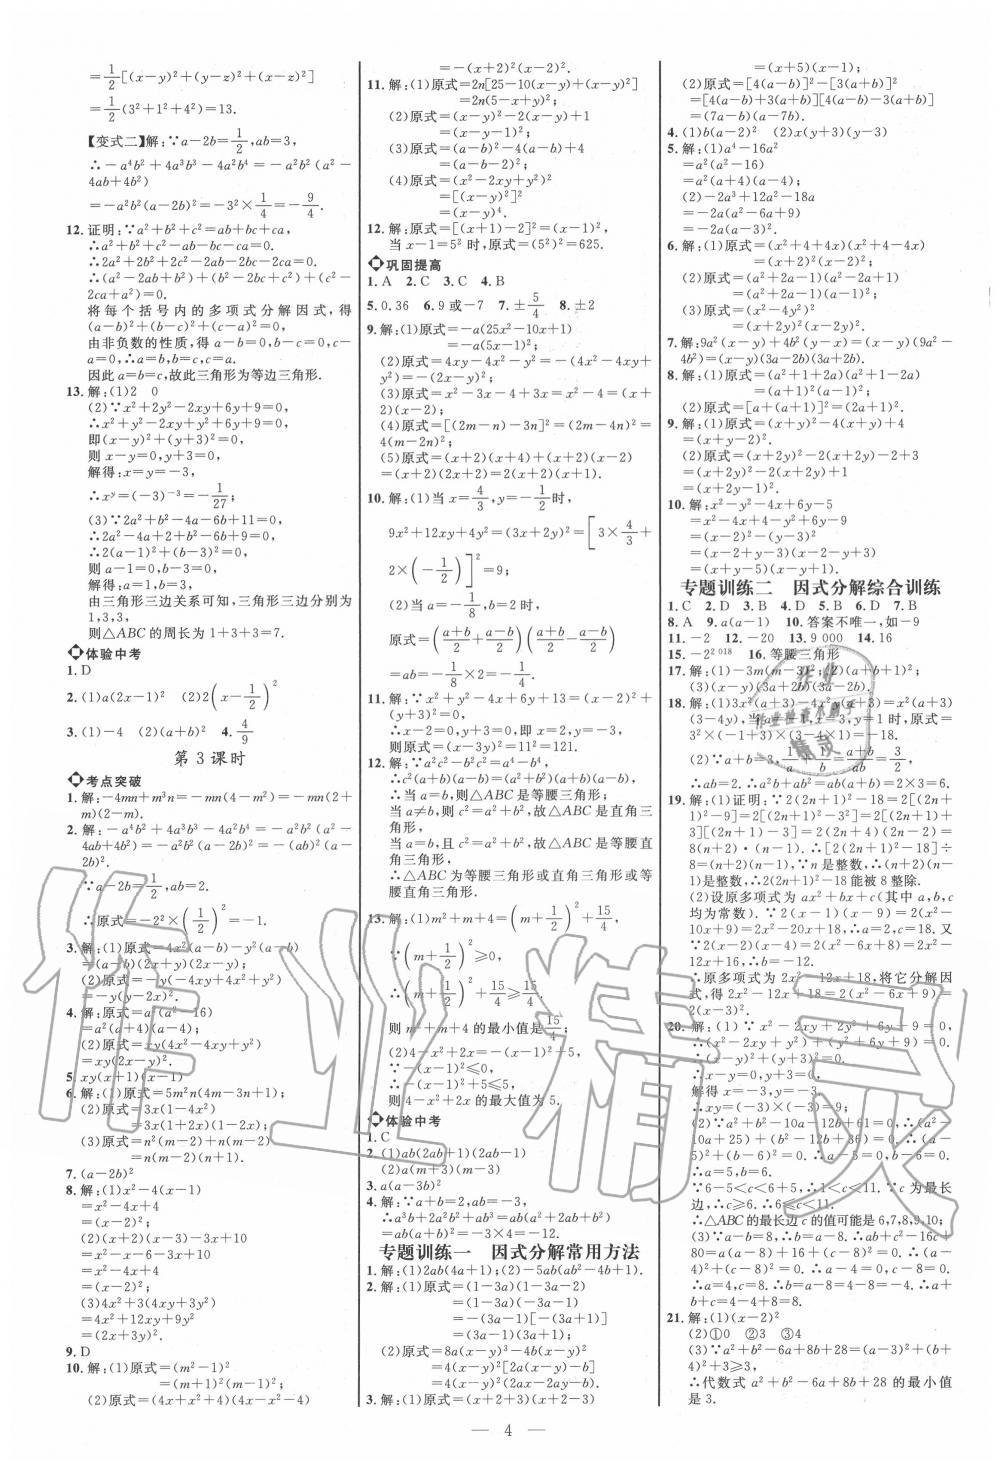 =1/2[(x-y)²+(y-z)²+(x-z)²]
=1/2(3²+1²+4²)=13.
【变式二】解:∵a-2b=1/2,ab=3,
∴-a⁴b²+4a³b³-4a²b⁴=-a²b²(a²-
4ab+4b²)
=-a²b²(a-2b)²=-3²×1/4=-9/4.
12. 证明:∵a²+b²+c²=ab+bc+ca,
∴a²+b²+c²-ab-bc-ca=0.
∴2a²+2b²+2c²-2ab-2bc-2ca=0.
∴(a²-2ab+b²)+(b²-2bc+c²)+(c²-
2ca+a²)=0.
将每个括号内的多项式分解因式,得
(a-b)²+(b-c)²+(c-a)²=0.
由非负数的性质,得 a-b=0,b-c=0,c-
a=0.∴a=b,b=c,c=a.
因此 a=b=c,故此三角形为等边三角形.
13. 解:(1)2 0
(2)∵x²+2y²-2xy+6y+9=0,
∴x²+y²-2xy+y²+6y+9=0,
即(x-y)²+(y+3)²=0,
则 x-y=0,y+3=0,
解得:x=y=-3,
∴xʸ=(-3)⁻³=-1/27;
(3)∵2a²+b²-4a-6b+11=0,
∴2a²-4a+2+b²-6b+9=0,
∴2(a-1)²+(b-3)²=0,
则 a-1=0,b-3=0,
解得:a=1,b=3,
由三角形三边关系可知,三角形三边分别为
1,3,3,
则△ABC 的周长为 1+3+3=7.
体验中考
1. D
2. (1)a(2x-1)² (2)2(x-1/2)²
3. (1)-4 (2)(a+b)² 4. 4/9
第 3 课时
考点突破
1. 解:-4mn+m³n=-mn(4-m²)=-mn(2+
m)(2-m).
2. 解:-a⁴b²+4a³b³-4a²b⁴=-a²b²(a²-
4ab+4b²)=-a²b²(a-2b)²=-(ab)²(a-
2b)².
∵a-2b=1/2,ab=2.
∴原式=-2²×(1/2)²=-1.
3. 解:(1)原式=4x²(a-b)-y²(a-b)
=(a-b)(2x+y)(2x-y).
(2)原式=-y(y²-4xy+4x²)
=-y(y-2x)².
4. 解:(1)原式=a²(a²-16)
=a²(a+4)(a-4);
(2)原式=xy(4x²-4xy+y²)
=xy(2x-y)².
5. xy(x+1)(x-1)
6. 解:(1)原式=5m²n(4m-3n+1);
(2)原式=3x(4x²-1)
=3x(1+2x)(1-2x);
(3)原式=n²(m-2)+n(m-2)
=n(m-2)(n+1).
7. (a-2b)²
8. 解:(1)x²-4(x-1)
=x²-4x+4
=(x-2)²;
(2)(x+2)(x-3)-3x+10
=x²-4x+4
=(x-2)²;
(3)4x²+3(4xy+3y²)
=4x²+12xy+9y²
=(2x+3y)².
9. D
10. 解:(1)原式=(m²-1)²
=(m+1)²(m-1)²;
(2)原式=(4x+x²+4)(4x-x²-4)
=-(x+2)²(x-2)².
11. 解:(1)原式=2n[25-10(x-y)+(x-y)²]
=2n(5-x+y)²;
(2)原式=(x-y)²-2(x-y)+1
=(x-y-1)²;
(3)原式=(a-b)²-4(a-b)+4
=(a-b-2)²;
(4)原式=(x²-2xy+y²)²
=[(x-y)²]²
=(x-y)⁴.
12. 解:原式=[(x+1)-2]²=(x-1)²,
当 x-1=5² 时,原式=(5²)²=625.
巩固提高
1. A 2. C 3. C 4. B
5. 0,36 6. 9 或-7 7. ±5/4 8. ±2
9. 解:(1)原式=-a(25x²-10x+1)
=-a(5x-1)²;
(2)原式=4xy-4x²-y²=-(4x²-4xy+
y²)=-(2x-y)²;
(3)原式=x²-3x-4+3x=x²-4=(x+
2)(x-2);
(4)原式=[(2m-n)-3n]²=(2m-4n)²=
4(m-2n)²;
(5)原式=(x+2)(x+4)+(x+2)(x-2)
=(x+2)(2x+2)=2(x+2)(x+1).
10. 解:(1)当 x=4/3,y=-1/2时,
9x²+12xy+4y²=(3x+2y)²=[3×4/3+
2×(-1/2)]²=9;
(2)当 a=-1/8,b=2 时,
原式=((a+b)/2+(a-b)/2)((a+b)/2-(a-b)/2)=
ab=-1/8×2=-1/4.
11. 解:∵x²+y²-4x+6y+13=(x-2)²+
(y+3)²=0,
∴x-2=0,y+3=0,即 x=2,y=-3,
则原式=(x-3y)²=11²=121.
12. 解:∵a²c²-b²c²=a⁴-b⁴,
∴c²(a²-b²)=(a²+b²)(a²-b²),
∴当 a=b,则△ABC 是等腰三角形;
当 a≠b,则 c²=a²+b²,故△ABC 是直角三
角形,
当 a=b,且 c²=a²+b²,故△ABC 是等腰直
角形,
∴△ABC 为等腰三角形或直角三角形或等
腰直角三角形.
13. 解:(1)m²+m+4=(m+1/2)²+15/4,
∵(m+1/2)²≥0,
∴(m+1/2)²+15/4≥15/4.
则 m²+m+4 的最小值是15/4;
(2)4-x²+2x=-(x-1)²+5,
∵-(x-1)²≤0,
∴-(x-1)²+5≤5,
则 4-x²+2x 的最大值为 5.
体验中考
1. C
2. (1)ab(2ab+1)(2ab-1)
(2)a(m+3)(m-3)
3. a(a-3b)²
4. 解:∵a+b=2,ab=-3,
∴a³b+2a²b²+ab³=ab(a²+2ab+b²)=
ab(a+b)²=-3×4=-12.
专题训练一 因式分解常用方法
1. 解:(1)2ab(4a+1);(2)-5ab(ab²-4b+1).
2. 解:(1)原式=(1-3a)(1-3a-2)
=(1-3a)(-3a-1)
=-(3a-1)[-(3a+1)]
=(3a-1)(3a+1);
(2)原式=8a(x-y)³-4b(x-y)²
=4(x-y)²[2a(x-y)-b]
=4(x-y)²(2ax-2ay-b).
3. 解:(1)原式=(x+2+3)(x+2-3)
=(x+5)(x-1);
(2)原式=[4(a-b)]²-[3(a+b)]²
=[4(a-b)+3(a+b)][4(a-b)-3(a+b)]
=(7a-b)(a-7b).
4. (1)b(a-2)² (2)x(y+3)(y-3)
5. 解:(1)a⁴-16a²
=a²(a²-16)
=a²(a+4)(a-4);
(2)-2a³+12a²-18a
=-2a(a²-6a+9)
=-2a(a-3)².
6. 解:(1)原式=(x²+4+4x)(x²+4-4x)
=(x+2)²(x-2)²;
(2)原式=(a²-2a)(a²-2a+1)
=a(a-2)(a-1)²;
(3)原式=(x²-4y²)²
=(x+2y)²(x-2y)².
7. 解:9a²(x-y)+4b²(y-x)=(x-y)(9a²-
4b²)=(x-y)(3a-2b)(3a+2b).
8. 解:(1)原式=(a²+1+2a)(a²+1-2a)
=(a+1)²(a-1)²;
(2)原式=[a+(a+1)]²=(2a+1)².
9. 解:(1)原式=(x+y)²-4(x+y)+4
=(x+y-2)².
(2)原式=(x+2y)²-2(x+2y)-2+3
=(x+2y)²-2(x+2y)+1
=(x+2y-1)².
10. 解:x²-y²-4x+6y-5
=x²-4x+4-y²+6y-9
=(x-2)²-(y-3)²
=(x-2+y-3)(x-2-y+3)
=(x+y-5)(x-y+1).
专题训练二 因式分解综合训练
1. C 2. D 3. B 4. D 5. B 6. D 7. B
8. A 9. a(a-1) 10. 答案不唯一,如-9
11. -2 12. -20 13. 9 000 14. 16
15. -2²⁰¹⁸ 16. 等腰三角形
17. 解:(1)-3m(m-3)²;(2)(a+b+1)²;
(3)(x-y)(3a+2b)(3a-2b).
18. 解:(1)3x²(a+3)-4x²y(a+3)=x²(a+3)
(3-4y),当a=1,x=3,y=1 时,原式=
3²×(-1+3)×(3-4×1)=-18.
∴ab=2.∴a²b+ab²=ab(a+b)=2×3=6.
19. 解:(1)证明:∵2(2n+1)²-18=2[(2n+
1)²-9]=2[(2n+1)²-3²]=2[(2n+1)+
3][(2n+1)-3]=2(2n+4)(2n-2)=
8(n+2)·(n-1).∴[2(2n+1)²-18]÷
8=(n+2)(n-1).∵n 是整数,∴(n+2)(n-
1)是整数.∴2(2n+1)²-18 能被 8 整除.
(2)设原多项式为 ax²+bx+c(其中 a,b,c
均为常数).∵2(x-1)(x-9)=2(x²-
10x+9)=2x²-20x+18,∴a=2,c=18.又
∵2(x-2)(x-4)=2(x²-6x+8)=2x²-
12x+16,∴b=-12.
∴原多项式为 2x²-12x+18,将它分解因
式,得 2x²-12x+18=2(x²-6x+9)=
2(x-3)².
20. 解:(1)∵x²-2xy+2y²+6y+9=0,
∴(x²-2xy+y²)+(y²+6y+9)=0,
∴(x-y)²+(y+3)²=0,
∴x-y=0,y+3=0,
解得 x=-3,y=-3,
∴xy=(-3)×(-3)=9;
(2)∵a²+b²-10a-12b+61=0,
∴(a²-10a+25)+(b²-12b+36)=0,∴(a-
5)²+(b-6)²=0,∴a-5=0,b-6=0,
∴a=5,b=6.
∵6-5<c<6+5,∴1<c<11.∵c 为最长
边,∴c≥6.∴6≤c<11.
∴△ABC 的最长边 c 的值可能是 6,7,8,9,10;
(3)∵a-b=8,∴b=a-8.∴ab+c²-16c+
80=a(a-8)+16+(c-8)²=0,∴(a-
4)²+(c-8)²=0.∴a-4=0,c-8=0.
∴a=4,c=8.∴b=a-8=4-8=-4.∴a+
b+c=4-4+8=8.
21. 解:(1)(x-2)²
(2)①0 ②3 ③4
(3)∵a²+b²-6a+8b+28=(a-3)²+(b+
4)²+3≥3,
∴代数式 a²+b²-6a+8b+28 的最小值
是 3.
— 4 —
作业精灵